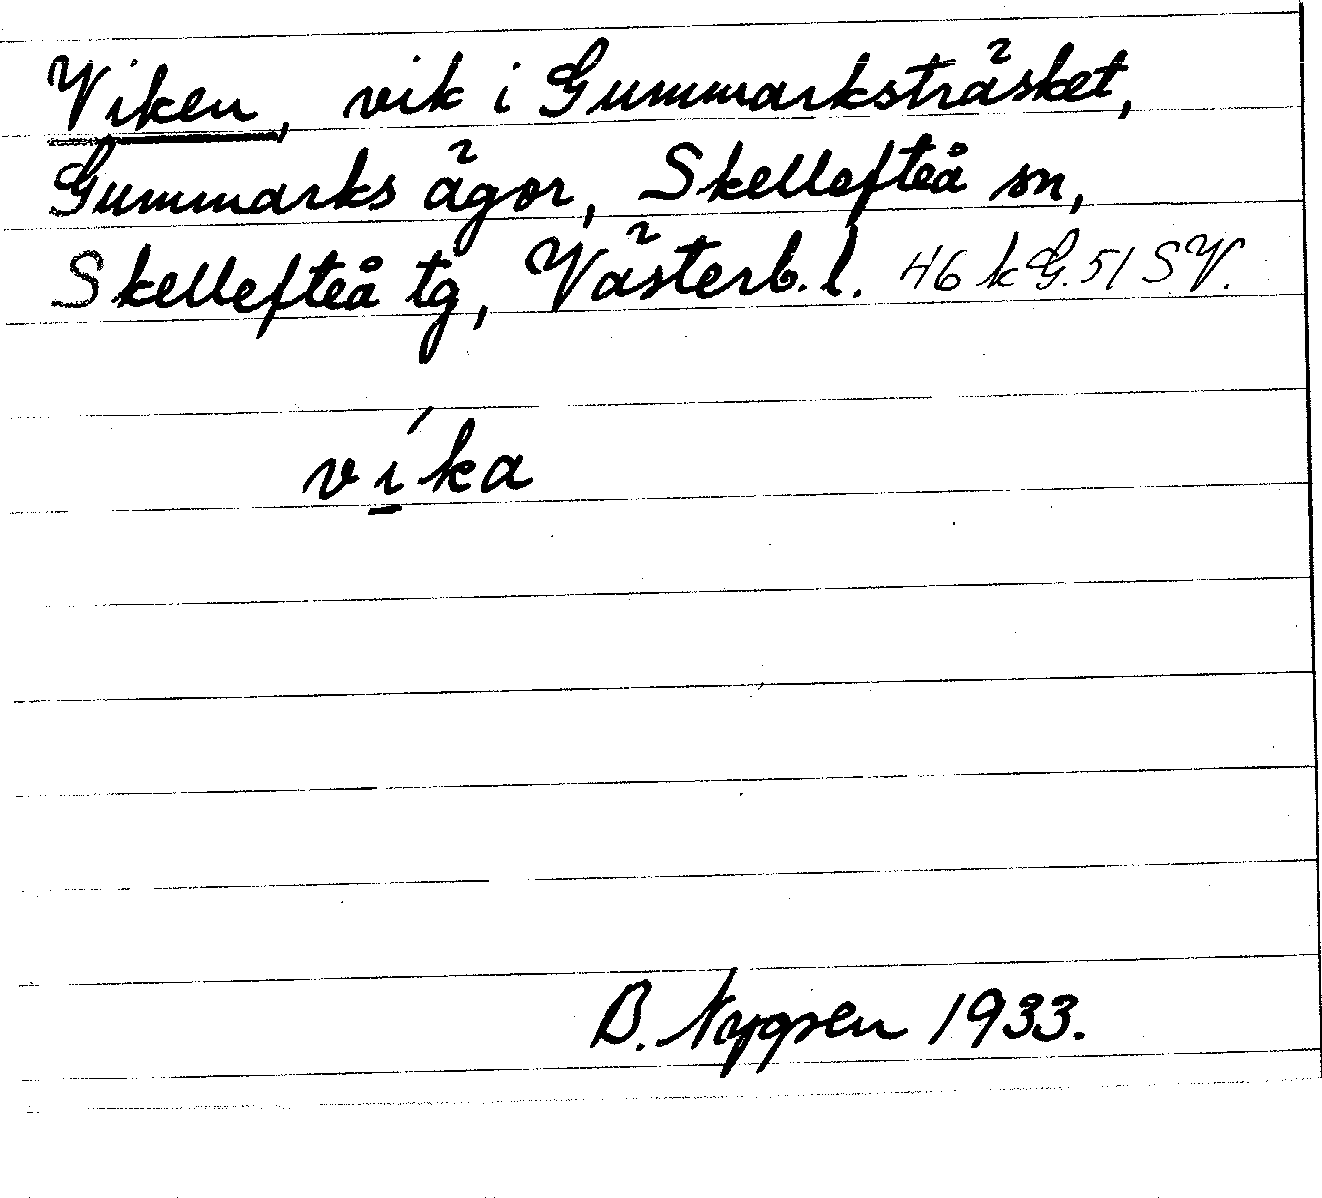 Viken, vik i Gummarksträsket,
Gummarks ägor, Skellefteå sn,
Skellefteå tg, Västerb. l. 46 k G. 51 SV.
víka
B. Nygren 1933.